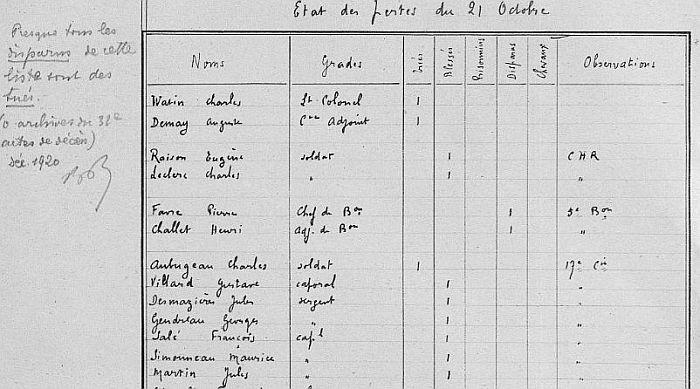 Etat des pertes du 21 Octobre
Presque tous les
disparus de cette
liste sont des
tués.
(o archives du 31e
actes de décès)
Déc. 1920
Noms Grades Tués Blessés Prisonniers Disparus Chevaux Observations
Watin Charles Lt Colonel 1
Demay Auguste Cne Adjoint 1
Raison Eugène soldat 1 CHR
Leclerc Charles " 1 "
Favre Pierre Chef de Bon 1 5e Bon
Challet Henri Adj. de Bon 1 "
Aubugeau Charles soldat 1 17e Cie
Villard Gustave caporal 1 "
Desmazières Jules sergent 1 "
Gendreau Georges " 1 "
Salé François capl 1 "
Simonneau Maurice " 1 "
Martin Jules " 1 "